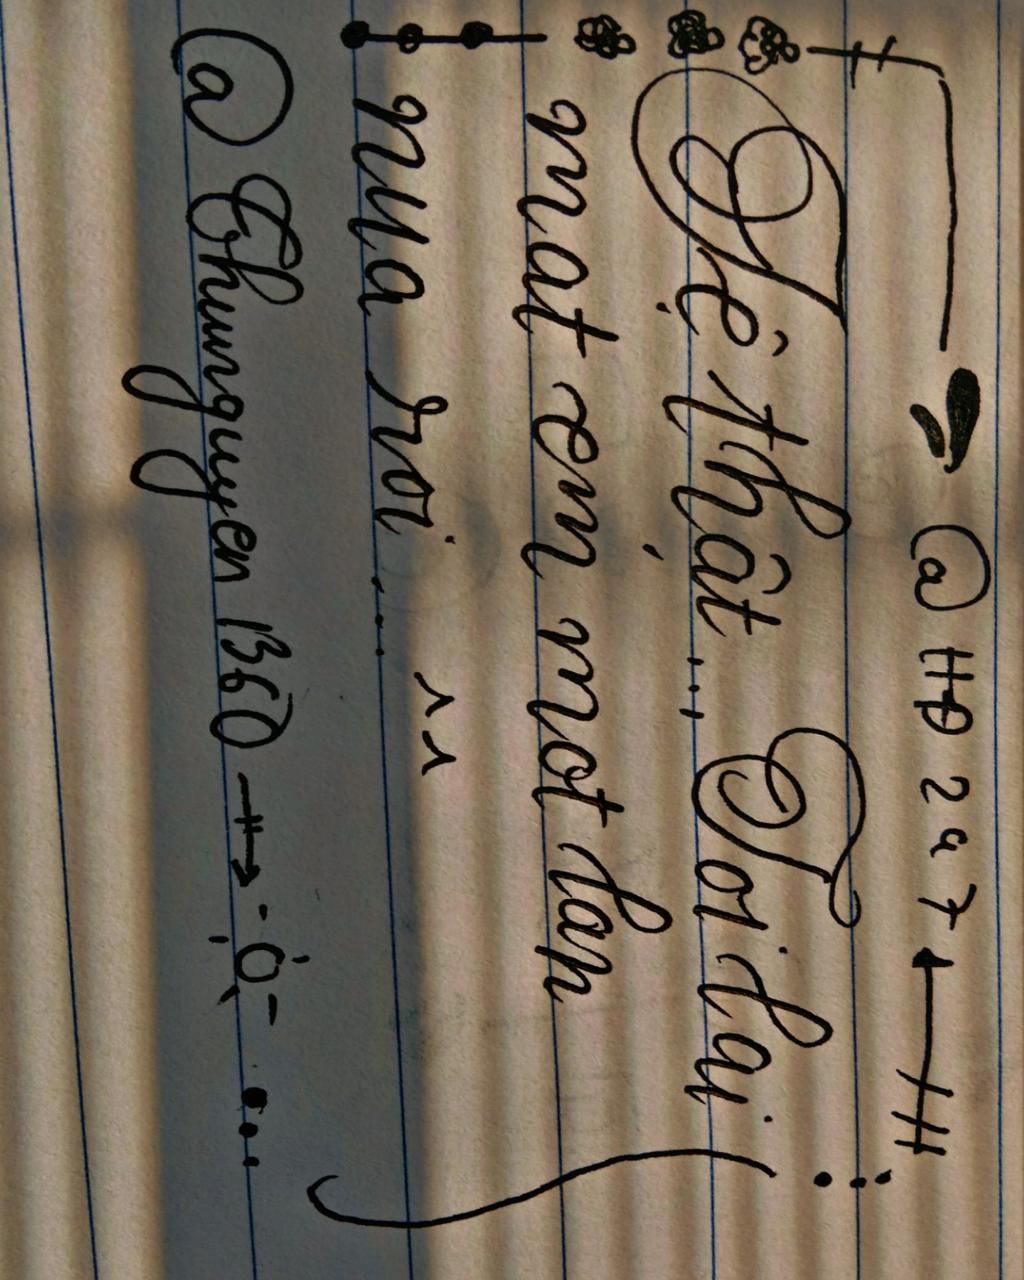 @ HD 247
Tệ thật... Toi lai
mat em mot lan
nua roi...
@ Thunguyen 1360